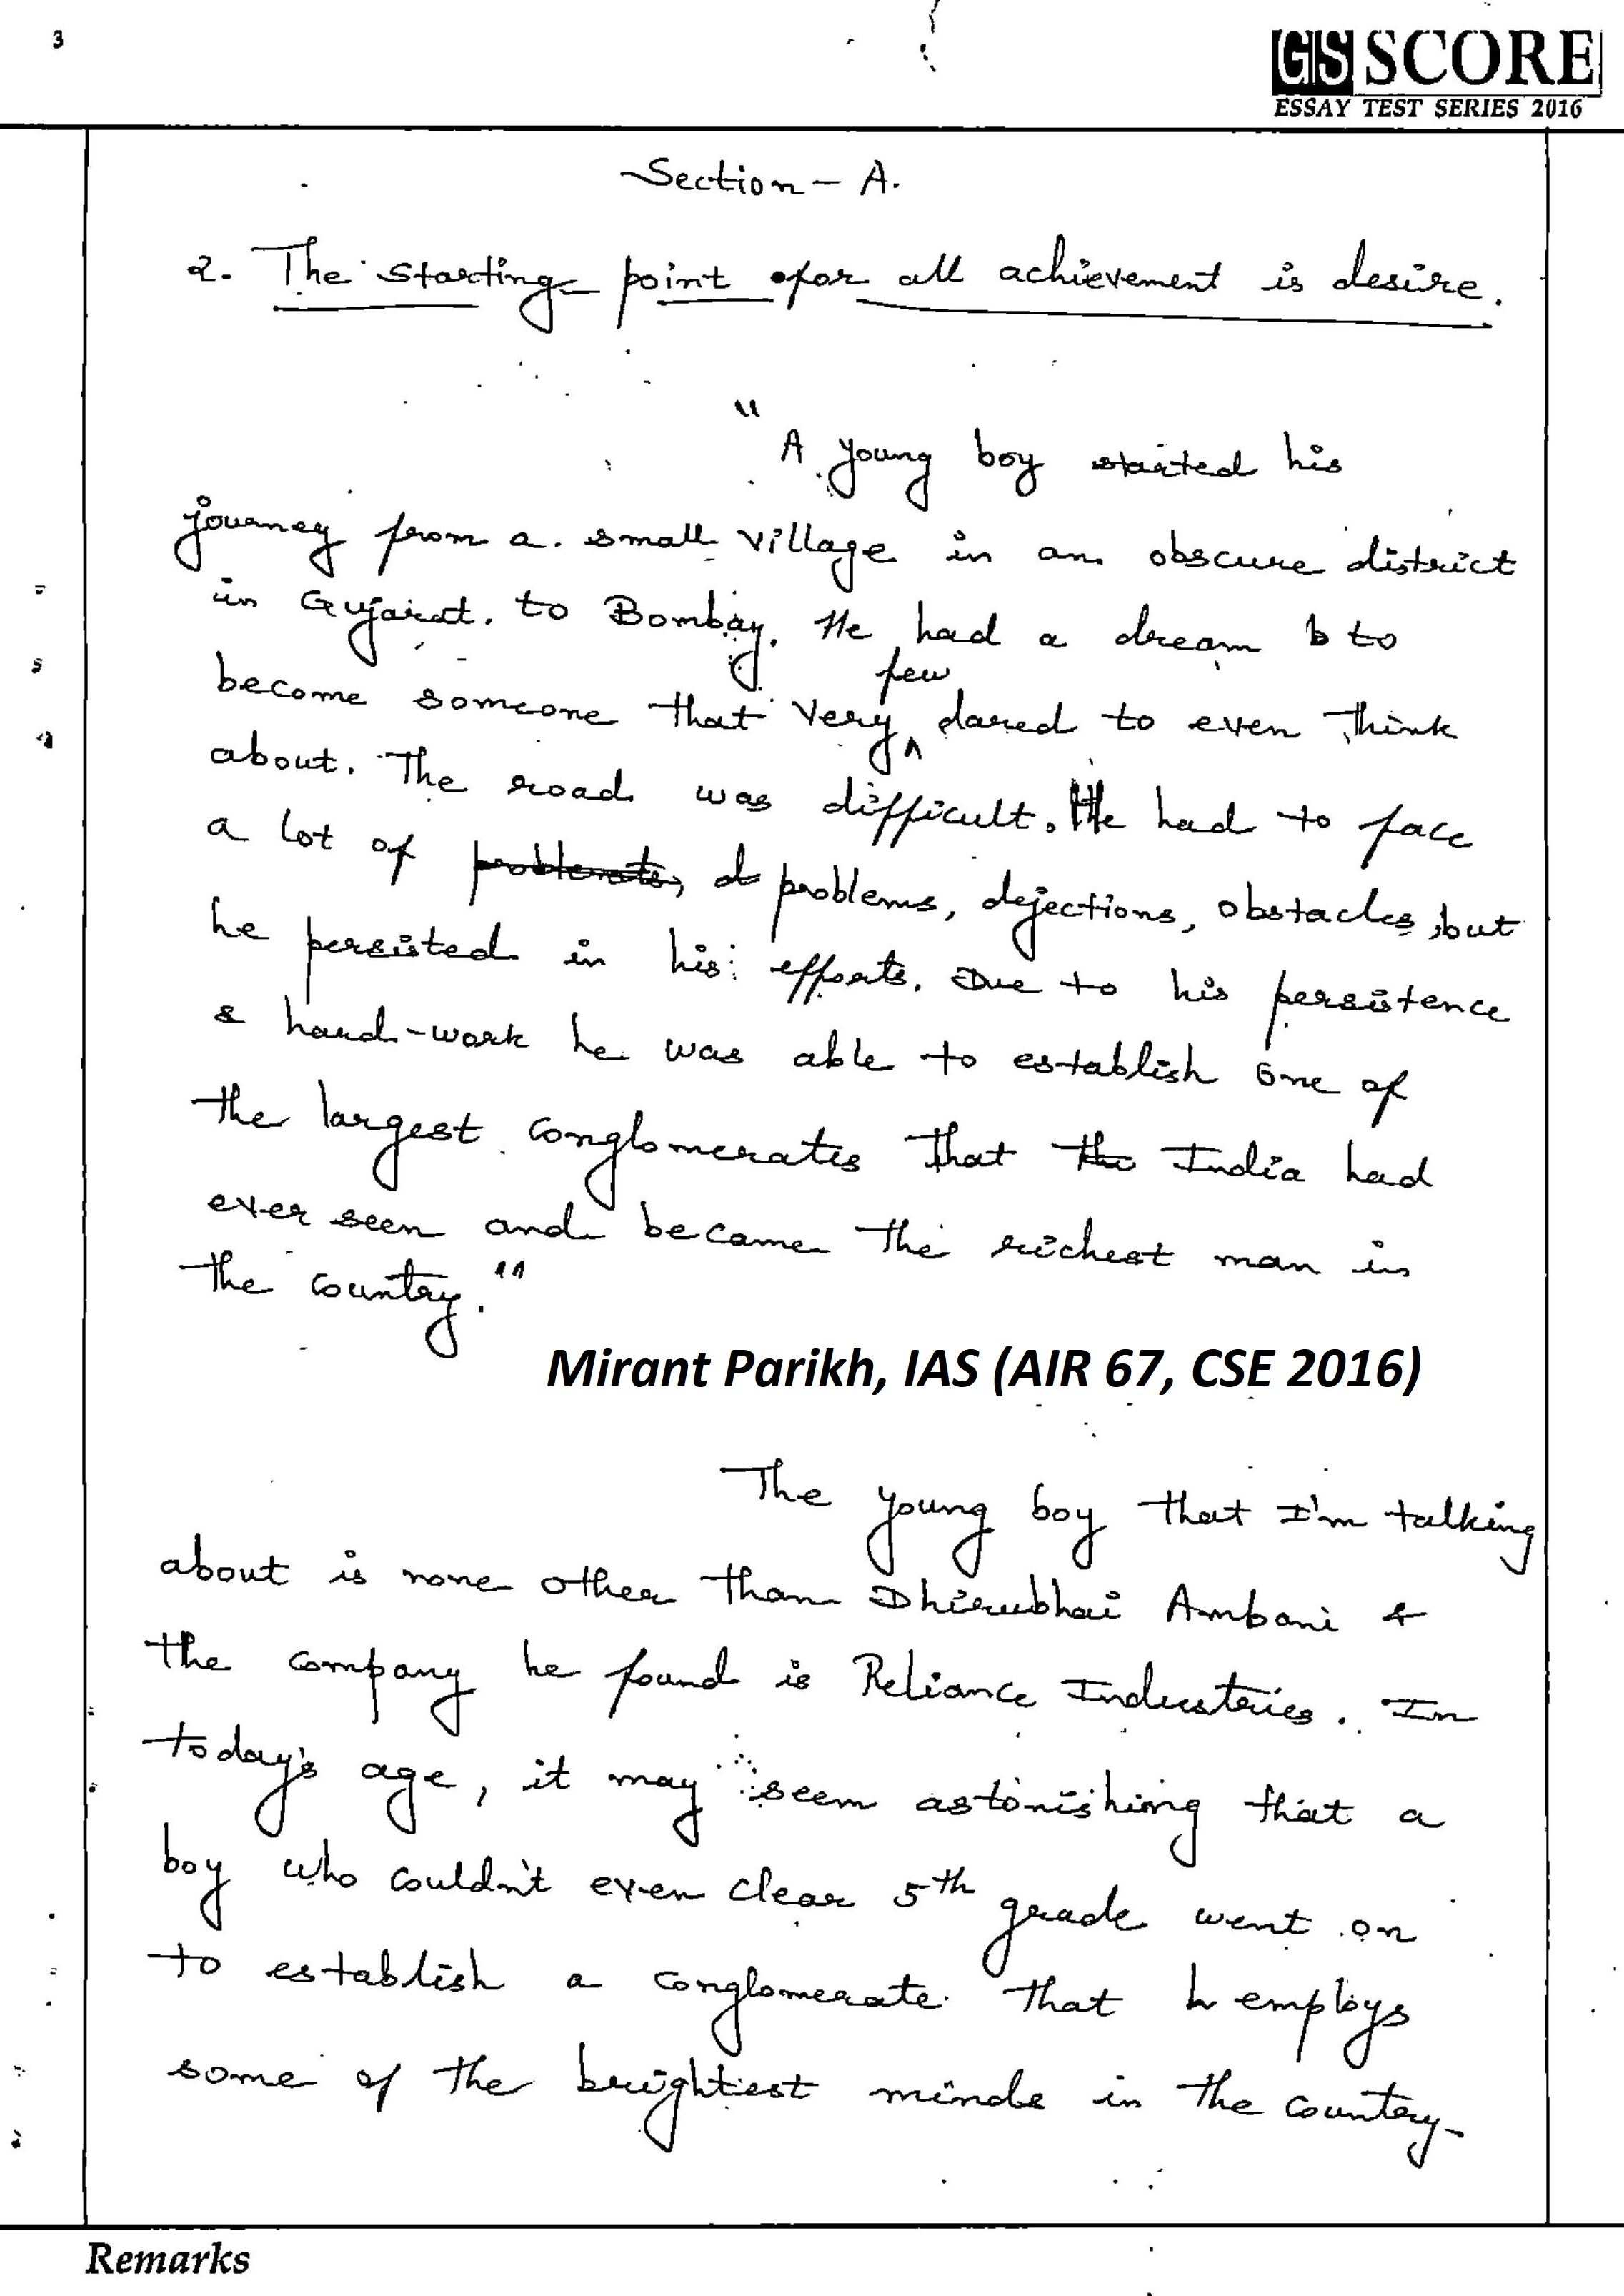 3
GS SCORE
ESSAY TEST SERIES 2016
Section - A.
2. The starting point for all achievement is desire.
"A young boy started his
journey from a small village in an obscure district
in Gujarat. to Bombay. He had a dream to
become someone that very few dared to even think
about. The road was difficult. He had to face
a lot of problems, dejections, obstacles, but
he persisted in his efforts. Due to his persistence
& hard-work he was able to establish one of
the largest conglomerates that India had
ever seen and became the richest man in
the country."
Mirant Parikh, IAS (AIR 67, CSE 2016)
The young boy that I'm talking
about is none other than Dhirubhai Ambani &
the company he found is Reliance Industries. In
today's age, it may seem astonishing that a
boy who couldn't even clear 5th grade went on
to establish a conglomerate that employs
some of the brightest minds in the country.
Remarks